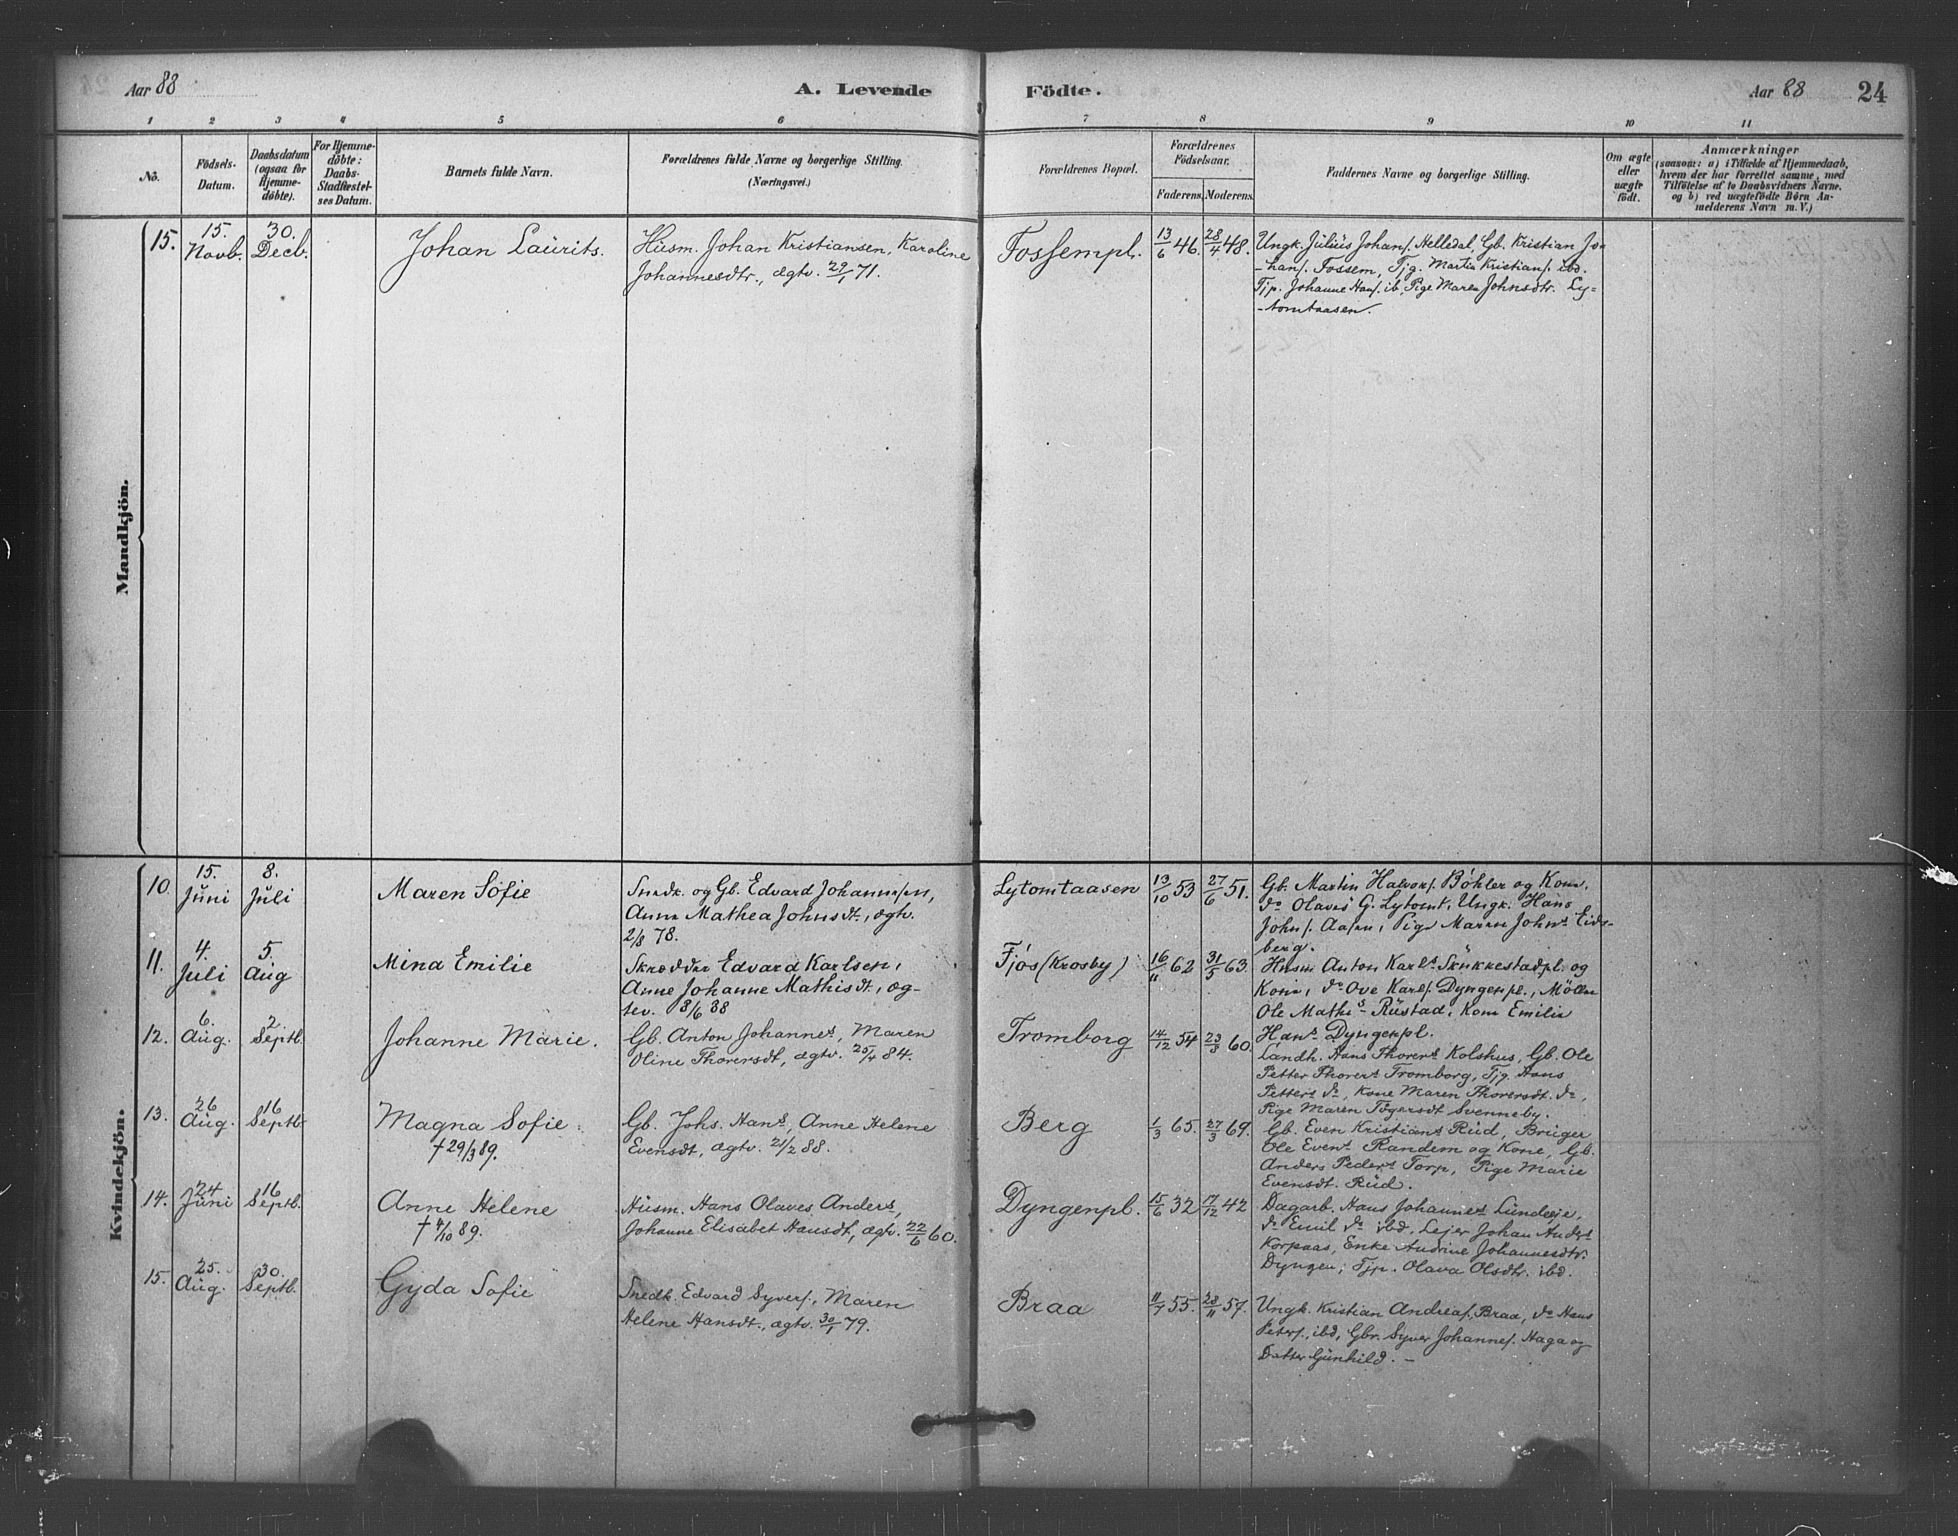 Aar 88
A. Levende
Födte.
Aar 88
24
1 2 3 4 5 6 7 8 9 10 11
No.
Födsels-
Datum.
Daabsdatum
(ogsaa for
Hjemme-
döbte).
For Hjemme-
döbte:
Daabs-
Stadfæstel-
ses Datum.
Barnets fulde Navn.
Forældrenes fulde Navne og borgerlige Stilling.
(Næringsvei.)
Forældrenes Bopæl.
Forældrenes
Födselsaar.
Faderens. Moderens.
Faddernes Navne og borgerlige Stilling.
Om ægte
eller
uægte
födt.
Anmærkninger
(saasom: a) i Tilfælde af Hjemmedaab,
hvem der har forrettet samme, med
Tilföielse af to Daabsvidners Navne.
og b) ved uægtefödte Börn An-
melderens Navn m. V.)
Mandkjön.
15.
15.
Novb.
30.
Decb.
Johan Laurits.
Husm. Johan Kristiansen, Karoline
Johannesdtr., ægtv. 29/1 71.
Fossempl.
13/6 46.
28/4 48.
Ungk. Julius Johans. Helledal, Gb. Kristian Jo
-hans. Fossem, Tjg. Martin Kristians. ibd.
Tjp. Johanne Hans. ib, Pige Maren Johnsdtr. Ly-
-tomtaasen.
Kvindekjön.
10.
15.
Juni
8.
Juli
Maren Sofie
Snedk. og Gb. Edvard Johannesen,
Anna Mathea Johnsdt, ægtv.
2/8 78.
Lytomtaasen
13/10 53
27/6 51.
Gb. Martin Halvors. Böhler og Kone,
do Olaves G. Lytomt, Ungk. Hans
Johns. Aasen, Pige Maren Johns Eids-
berg.
11.
4.
Juli
5.
Aug
Mina Emilie
Skrædder Edvard Karlsen,
Anne Johanne Mathisdt, æg-
tev. 8/6 88
Fjös (Krosby)
16/11 62
31/5 63.
Husm Anton Karls Skukkestadpl. og
Kone, do Ove Karls. Dyngenpl., Möller
Ole Mathis Rustad, Kone Emilie
Hans Dyngenpl.
12.
6.
Aug.
2
Septb
Johanne Marie.
Gb. Anton Johannes, Maren
Oline Thorersdt, ægtv. 25/4 84.
Tromborg
14/12 54
23/3 60.
Landh. Hans Thorers Kolshus, Gb. Ole
Petter Thorers Tromborg, Tjg. Hans
Petters do, Kone Maren Thorersdt. do,
Pige Maren Tögersdt Svenneby.
13.
26
Aug.
16
Septb
Magna Sofie.
† 29/3 89.
Gb. Johs. Hans, Anne Helene
Evensdt, ægtv. 21/2 88.
Berg
1/3 65.
27/3 69.
Gb. Even Kristians Rud, Bruger
Ole Evens Randem og Kone, Gb.
Anders Peders Torp, Pige Marie
Evensdt. Rud.
14.
24
Juni
16
Septb.
Anne Helene
† 4/10 89.
Husm. Hans Olaves Anders,
Johanne Elisabet Hansdt, ægtv. 22/6 60.
Dyngenpl.
15/6 32
17/12 42
Dagarb. Hans Johannes Lundeeje,
do Emil do ibd, Lejer Johan Anders
Korpaas, Enke Andrine Johannesdtr.
Dyngen, Tjp. Olava Olsdtr. ibd.
15.
25.
Aug.
30.
Septb.
Gyda Sofie
Snedk. Edvard Syvers., Maren
Helene Hansdt., ægtv. 30/1 79.
Braa
11/7 55.
28/11 57.
Ungk. Kristian Andreas. Braa, do Hans
Peters., ibd, Gbr. Syver Johannes. Haga og
Datter Gunhild. –